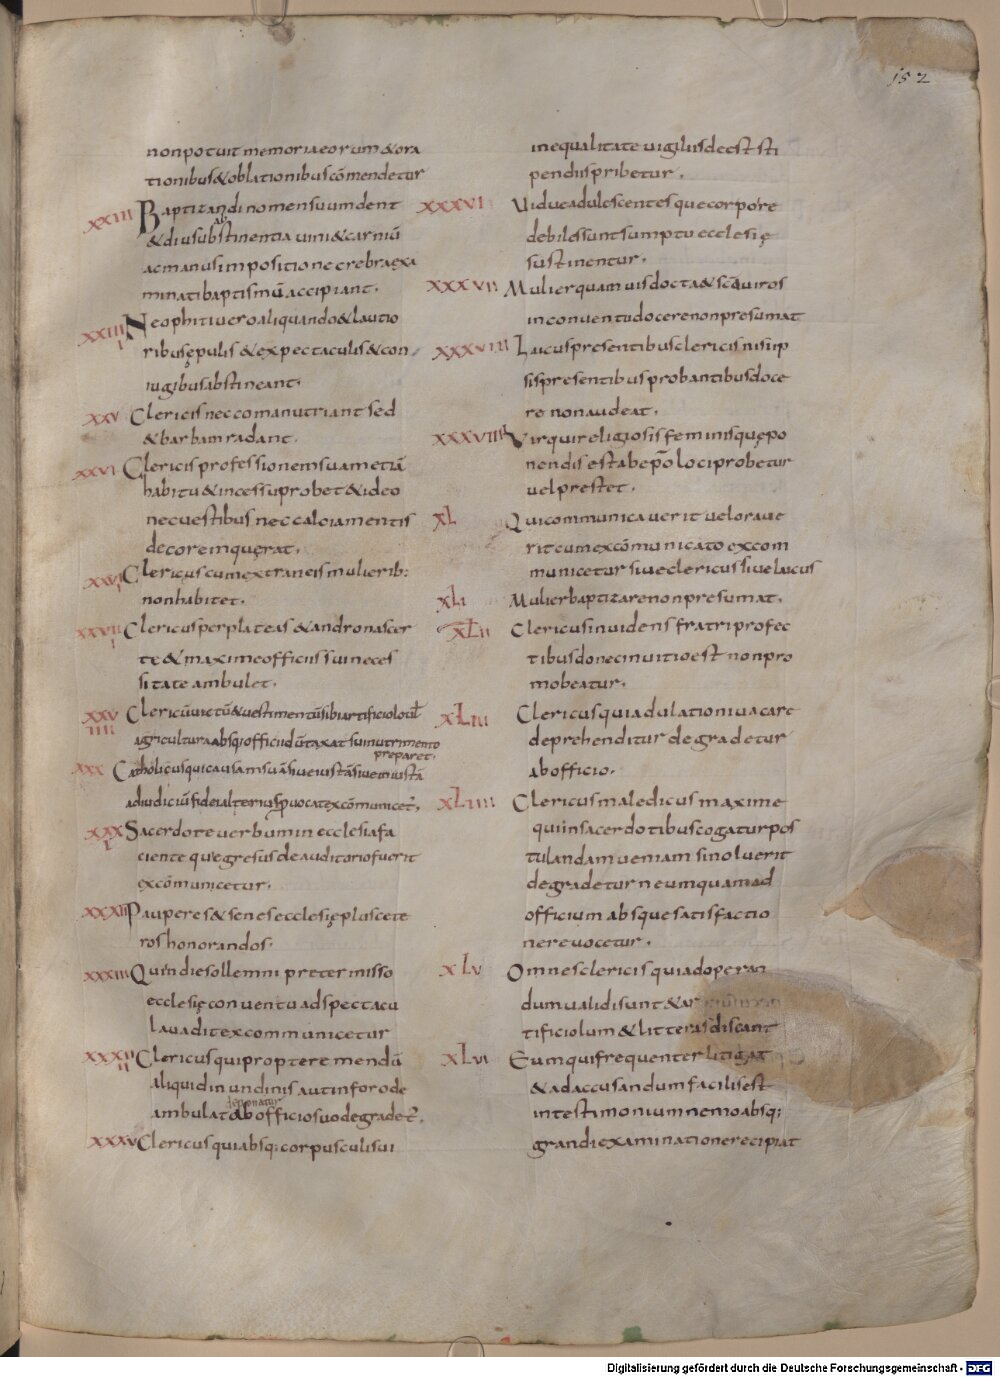 152
non potuit memoria eorum & ora
tionibus & oblationibus cōmendetur
XXIII Baptizandi nomen suum dent
& diu sub abstinentia uini & carniū
ac manus impositione crebra exa
minati baptismū accipiant.
XXIIII Neophiti uero aliquando & lautio
ribus epulis & expectaculis & con
iugibus abstineant.
XXV Clericis nec coma nutriant sed
& barbam radant.
XXVI Clericis professionem suam etiā
habitu & incessu probet & ideo
nec uestibus nec calciamentis
decorem querat.
XXVII Clericus cum extraneis mulierib:
non habitet.
XXVIII Clericus per plateas & andronas cer
te & maxime officiis sui neces
sitate ambulet.
XXVIIII Clericū uictū & uestimentū sibi artificiolo ul
agricultura absq; officii dūtaxat sui nutrimento
preparet.
XXX Catholicus qui causam suā siue iustā siue iniustā
ad iudiciū fidei alterius puocat excōmunicet.
XXXI Sacerdote uerbum in ecclesia fa
ciente qui egresus de auditorio fuerit
excōmunicetur.
XXXII Pauperes & senes ecclesię plus cete
ros honorandos.
XXXIII Qui in die sollemni pretermisso
ecclesię conuentu ad spectacu
la uadit excommunicetur
XXXIIII Clericus qui propter emendū
aliquid in nundinis aut in foro de
ambulat ab officio suo degradet.
XXXV Clericus qui absq; corpusculi sui
inequalitate uigiliis deest sti
pendiis pribetur.
XXXVI Uidue adulescentes que corpore
debiles sunt sumptu ecclesię
sustinentur.
XXXVII Mulier quamuis docta & scā uiros
in conuentu docere non presumat
XXXVIII Laicus presentibus clericis nisi ip
sis presentibus probantibus doce
re non audeat.
XXXVIIII Vir qui religiosis feminis quę po
nendis est ab epō loci probetur
uel prestet.
XL Qui communicauerit uel oraue
rit cum excōmunicato excom
municetur siue clericus siue laicus
XLI Mulier baptizare non presumat.
XLII Clericus inuidens fratri profec
tibus donec in uitio est non pro
mobeatur.
XLIII Clericus qui adulationi uacare
deprehenditur degradetur
ab officio.
XLIIII Clericus maledicus maxime
qui in sacerdotibus cogatur pos
tulandam ueniam si noluerit
degradetur ne umquam ad
officium absque satisfactio
ne reuocetur.
XLV Omnes clericis qui ad operan
dum ualidi sunt & ar
tificiolum & litteras discant
XLVI Eum qui frequenter litigat
& ad accusandum facilis est
in testimonium nemo absq;
grandi examinatione recipiat
Digitalisierung gefördert durch die Deutsche Forschungsgemeinschaft - DFG